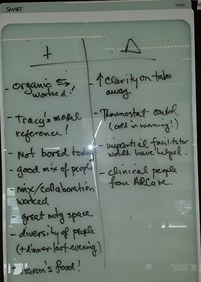 SMART
+
- Organic 5s
worked!
- Tracy's model
reference!
- Not bored today
- good mix of people
- mix/collaboration
worked
- great mtg space
- diversity of people
(+ dinner last evening)
- Sharon's food!
Δ
- ↑ Clarity on take
away.
- Thermostat control
(cold in morning!)
- impartial facilitator
would have helped.
- clinical people
from ARCare.